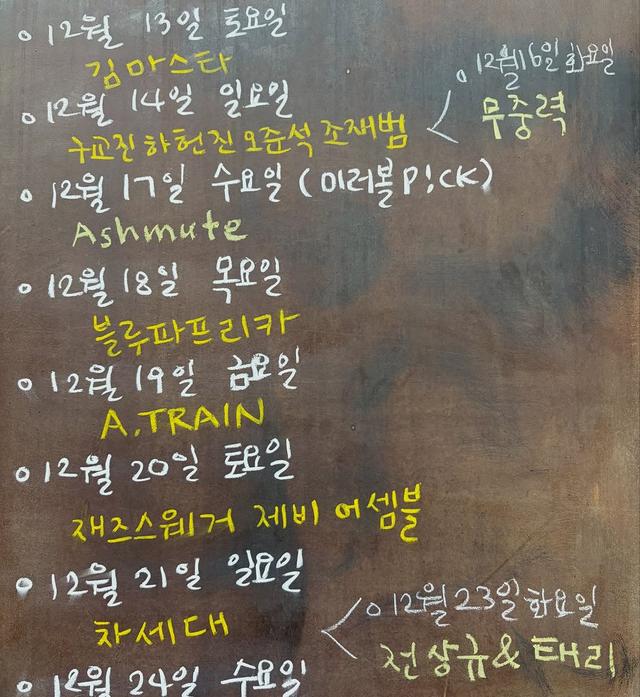 12월 13일 토요일
김마스타
12월 14일 일요일
구교진 하헌진 오준석 조재범
12월 16일 화요일
무중력
12월 17일 수요일 (미러볼 P!CK)
Ashmute
12월 18일 목요일
블루파프리카
12월 19일 금요일
A.TRAIN
12월 20일 토요일
재즈스웨거 제비 어셈블
12월 21일 일요일
차세대
12월 23일 화요일
전상규 & 태리
12월 24일 수요일